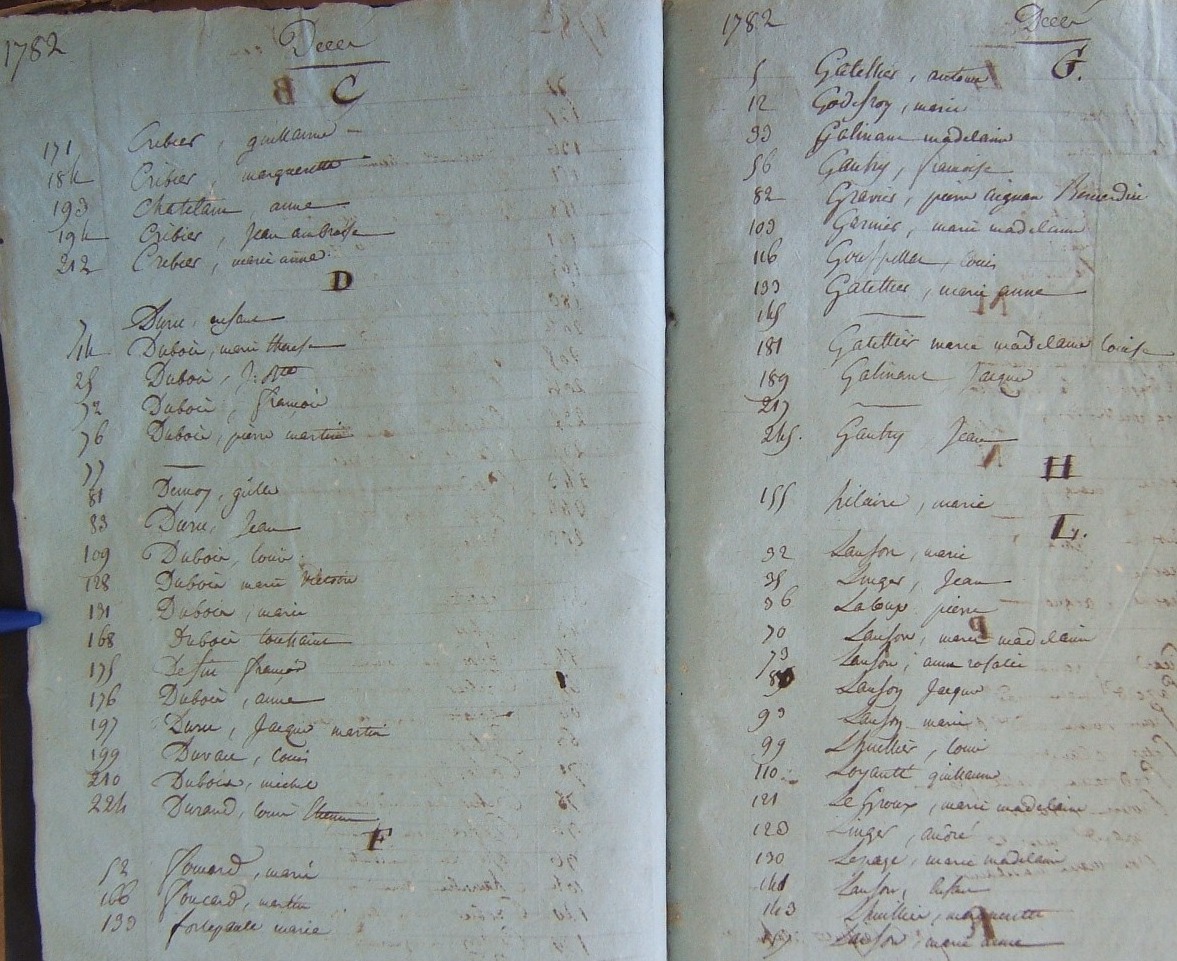 1782 Deces
C
171 Cribier, guillaume
184 Cribier, margueritte
193 Chatelain, anne
194 Cribier, Jean ambroise
212 Cribier, marie anne
D
7 Duru, enfant
14 Dubois, marie therese
25 Dubois, J. Bte
72 Dubois, francois
76 Dubois, pierre martin
77 —
81 Demoy, gilles
83 Duru, Jean
109 Dubois, louis
128 Dubois marie victoire
131 Dubois, marie
168 Dubois toussaint
175 francois
176 Dubois, anne
197 Duru, Jacque martin
199 Duvau, louis
210 Dubois, michel
224 Durand, louis Etienne
F
52 foucard, marie
166 foucard, martin
133 marie
1782 Deces
G.
5 Gatellier, antoine
12 Godefroy, marie
33 Galinant madelaine
56 Gautry, francoise
82 Gravier, pierre aignan Benardin
103 Garnier, marie madelaine
116 louis
133 Gatellier, marie anne
145 —
181 Gatellier marie madelaine louise
189 Galinant Jacque
217 —
245. Gautry Jean
H
155 hilaire, marie
L.
32 Lanson, marie
35 Linger, Jean
36 Latoux pierre
70 Lanson, marie madelaine
73 Lanson, anne rosalie
Lanson Jacque
93 Lanson, marie
99 Lhuillier, louis
110 Loyault guillaume
121 Le Groux, marie madelaine
123 Linger, andré
130 Lepage, marie madelaine
141 Lanson, enfant
143 Lhuillier, marguerite
Lanson, marie anne